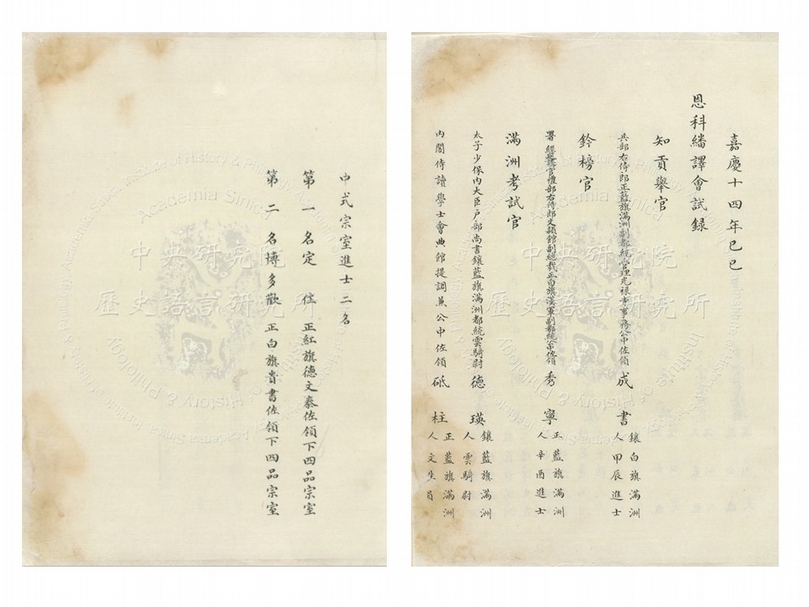 嘉慶十四年己巳
恩科繙譯會試錄
知貢舉官
兵部右侍郎正藍旗滿洲副都統管理光祿寺事務公中佐領 成書 鑲白旗滿洲人甲辰進士
鈐榜官
署 禮部右侍郎文穎館副總裁正白旗漢軍副都統 佐領 秀寧 正藍旗滿洲人辛酉進士
滿洲考試官
太子少保內大臣戶部尚書鑲藍旗滿洲都統雲騎尉 德瑛 鑲藍旗滿洲人雲騎尉
內閣侍讀學士會典館提調兼公中佐領 砥柱 正藍旗滿洲人文生員
中式宗室進士二名
第一名定住 正紅旗德文泰佐領下四品宗室
第二名博多歡 正白旗貴書佐領下四品宗室
中央研究院
歷史語言研究所
Academia Sinica
Institute of History & Philology